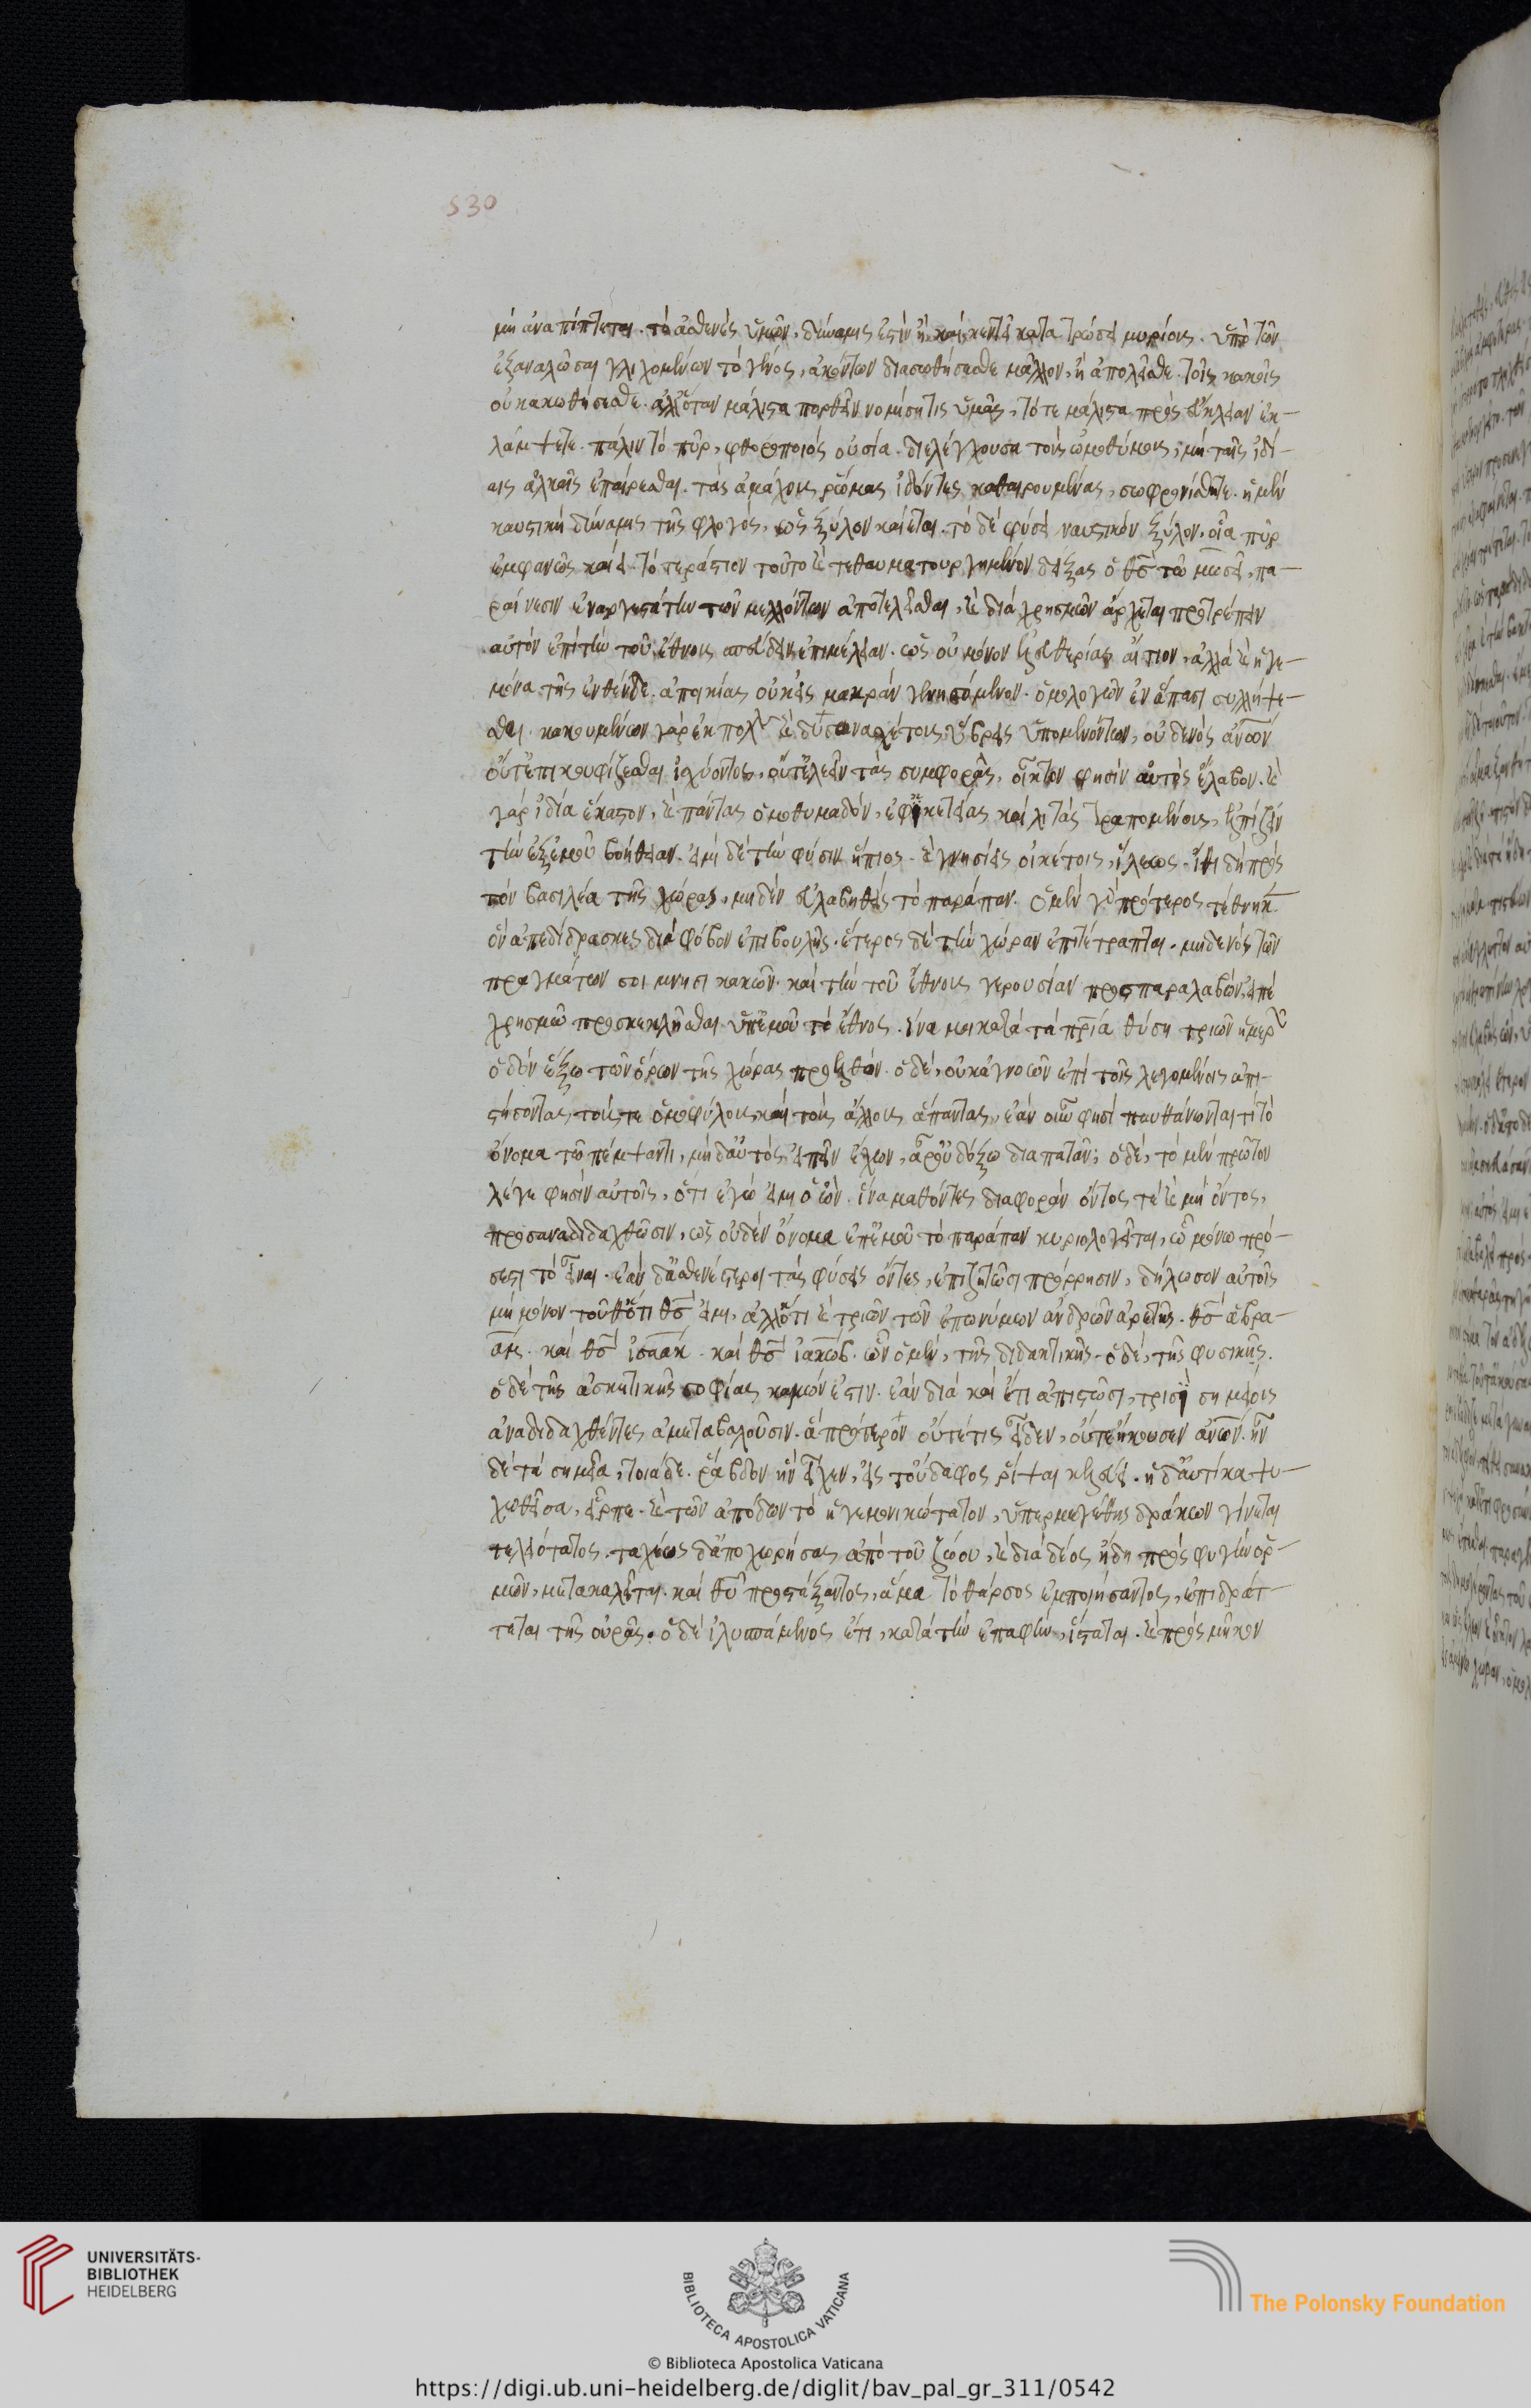 530
μὴ ἀναπίπτετε. τὸ ἀσθενὲς ὑμῶν, δύναμίς ἐστιν ἣ καὶ κεντεῖ κατατρώσει μυρίους. ὑπὸ τῶν
ἐξαναλῶσαι γλιχομένων τὸ γένος, ἀκόντων διασωθήσεσθε μᾶλλον, ἢ ἀπολεῖσθε. τοῖς κακοῖς
οὐ κακωθήσεσθε. ἀλλ' ὅταν μάλιστα πορθεῖν νομίσῃ τις ὑμᾶς, τότε μάλιστα πρὸς εὔκλειαν ἐκ-
λάμψετε. πάλιν τὸ πῦρ, φθοροποιὸς οὐσία. διελέγχουσα τοὺς ὠμοθύμους, μὴ ταῖς ἰδί-
αις ἀλκαῖς ἐπαίρεσθαι. τὰς ἀμάχους ῥώμας ἰδόντες καθαιρουμένας, σωφρονίσθητε. ἡ μὲν
καυστικὴ δύναμις τῆς φλογὸς, ὡς ξύλον καίεται. τὸ δὲ φύσει καυστικὸν ξύλον, οἷα πῦρ
ἐμφανῶς καίει. τὸ τεράστιον τοῦτο καὶ τεθαυματουργημένον δείξας ὁ θς τῷ μωσεῖ, πα-
ραίνεσιν ἐναργεστάτην τῶν μελλόντων ἀποτελεῖσθαι, καὶ διὰ χρησμῶν ἄρχεται προτρέπειν
αὐτὸν ἐπὶ τὴν τοῦ ἔθνους σπεύδειν ἐπιμέλειαν. ὡς οὐ μόνον ἐλευθερίας αἴτιον, ἀλλὰ καὶ ἡγε-
μόνα τῆς ἐνθένδε ἀποικίας οὐκ εἰς μακρὰν γενησόμενον. ὁμολογῶν ἐν ἅπασι συλλήψε-
σθαι. κακουμένων γὰρ ἐκ πολλοῦ καὶ δυσανασχέτους ὕβρεις ὑπομενόντων, οὐδενὸς ανων
οὔτ' ἐπικουφίζεσθαι ἰσχύοντος, οὔτ' ἐλεεῖν τὰς συμφορὰς, οἶκτον φησὶν αὐτὸς ἔλαβον. καὶ
γὰρ ἰδίᾳ ἕκαστον, καὶ πάντας ὁμοθυμαδὸν, ἐφ' ἱκετείας καὶ λιτὰς τραπομένους, ἐλπίζειν
τὴν ἐξ ἐμοῦ βοήθειαν. εἰμὶ δὲ τὴν φύσιν ἤπιος. καὶ γνησίοις οἰκέτοις, ἵλεως. ἴθι δὴ πρὸς
τὸν βασιλέα τῆς χώρας, μηδὲν εὐλαβηθεὶς τὸ παράπαν. ὁ μὲν γὰρ πρότερος τέθνηκ
ὃν ἀπεδίδρασκες διὰ φόβον ἐπιβουλῆς. ἕτερος δὲ τὴν χώραν ἐπιτέτραπται. μηδενὸς τῶν
πραγμάτων σοι μνησικακῶν. καὶ τὴν τοῦ ἔθνους γερουσίαν προσπαραλαβὼν, εἰπὲ
χρησμῷ προσκεκλῆσθαι ὑπ' ἐμοῦ τὸ ἔθνος. ἵνα μοι κατὰ τὰ πρια θύσῃ τριῶν ἡμερῶν
ὁδὸν ἔξω τῶν ὅρων τῆς χώρας προελθόν. ὁ δὲ, οὐκ ἀγνοῶν ἐπὶ τοῖς λεγομένοις ἀπι-
στήσοντας, τούς τε ὁμοφύλους καὶ τοὺς ἄλλους ἅπαντας, ἐὰν οὖν φησὶ πυνθάνωνται τί τὸ
ὄνομα τῷ πέμψαντι, μὴ δ' αὐτὸς εἰπεῖν ἔχων, ἆρ' οὐ δόξω διαπατᾶν; ὁ δὲ, τὸ μὲν πρῶτον
λέγε φησὶν αὐτοῖς, ὅτι ἐγώ εἰμι ὁ ὤν. ἵνα μαθόντες διαφορὰν ὄντος τὲ καὶ μὴ ὄντος,
προσαναδιδαχθῶσιν, ὡς οὐδὲν ὄνομα ἐπ' ἐμοῦ τὸ παράπαν κυριολογεῖται, ᾧ μόνῳ πρό-
σεστι τὸ εἶναι. ἐὰν δ' ἀσθενέστεροι τὰς φύσεις ὄντες, ἐπιζητῶσι πρόρρησιν, δήλωσον αὐτοῖς
μὴ μόνον τοῦθ' ὅτι θς εἰμι, ἀλλ' ὅτι καὶ τριῶν τῶν ἐπωνύμων ἀνδρῶν ἀρετῆς. θς ἀβρα-
άμ. καὶ θς ἰσαάκ. καὶ θς ἰακώβ. ὧν ὁ μὲν, τῆς διδακτικῆς. ὁ δὲ, τῆς φυσικῆς.
ὁ δὲ τῆς ἀσκητικῆς σοφίας κανών ἐστιν. ἐὰν διὰ καὶ ἔτι ἀπιστῶσι, τρισὶ σημείοις
ἀναδιδαχθέντες ἀμεταβαλοῦσιν. ἃ πρότερον οὔτέ τις εἶδεν, οὔτε ἤκουσεν ανων. ἦν
δὲ τὰ σημεῖα, τοιάδε. ῥάβδον ἣν εἶχεν, εἰς τοὔδαφος ῥίψαι κελεύει. ἡ δ' αὐτίκα ψυ-
χωθεῖσα, εἷρπε. καὶ τῶν ἀπόδων τὸ ἡγεμονικώτατον, ὑπερμεγέθης δράκων γίνεται
τελειότατος. ταχέως δ' ἀποχωρήσας ἀπὸ τοῦ ζῴου, καὶ διὰ δέος ἤδη πρὸς φυγὴν ὁρ-
μῶν, μετακαλεῖται. καὶ θυ προστάξαντος, ἅμα τὸ θάρσος ἐμποιήσαντος, ἐπιδράτ-
τεται τῆς οὐρᾶς. ὁ δὲ ἰλυσπώμενος ἔτι, κατὰ τὴν ἐπαφὴν, ἵσταται. καὶ πρὸς μῆκον
UNIVERSITÄTS-
BIBLIOTHEK
HEIDELBERG
BIBLIOTECA APOSTOLICA VATICANA
The Polonsky Foundation
© Biblioteca Apostolica Vaticana
https://digi.ub.uni-heidelberg.de/diglit/bav_pal_gr_311/0542